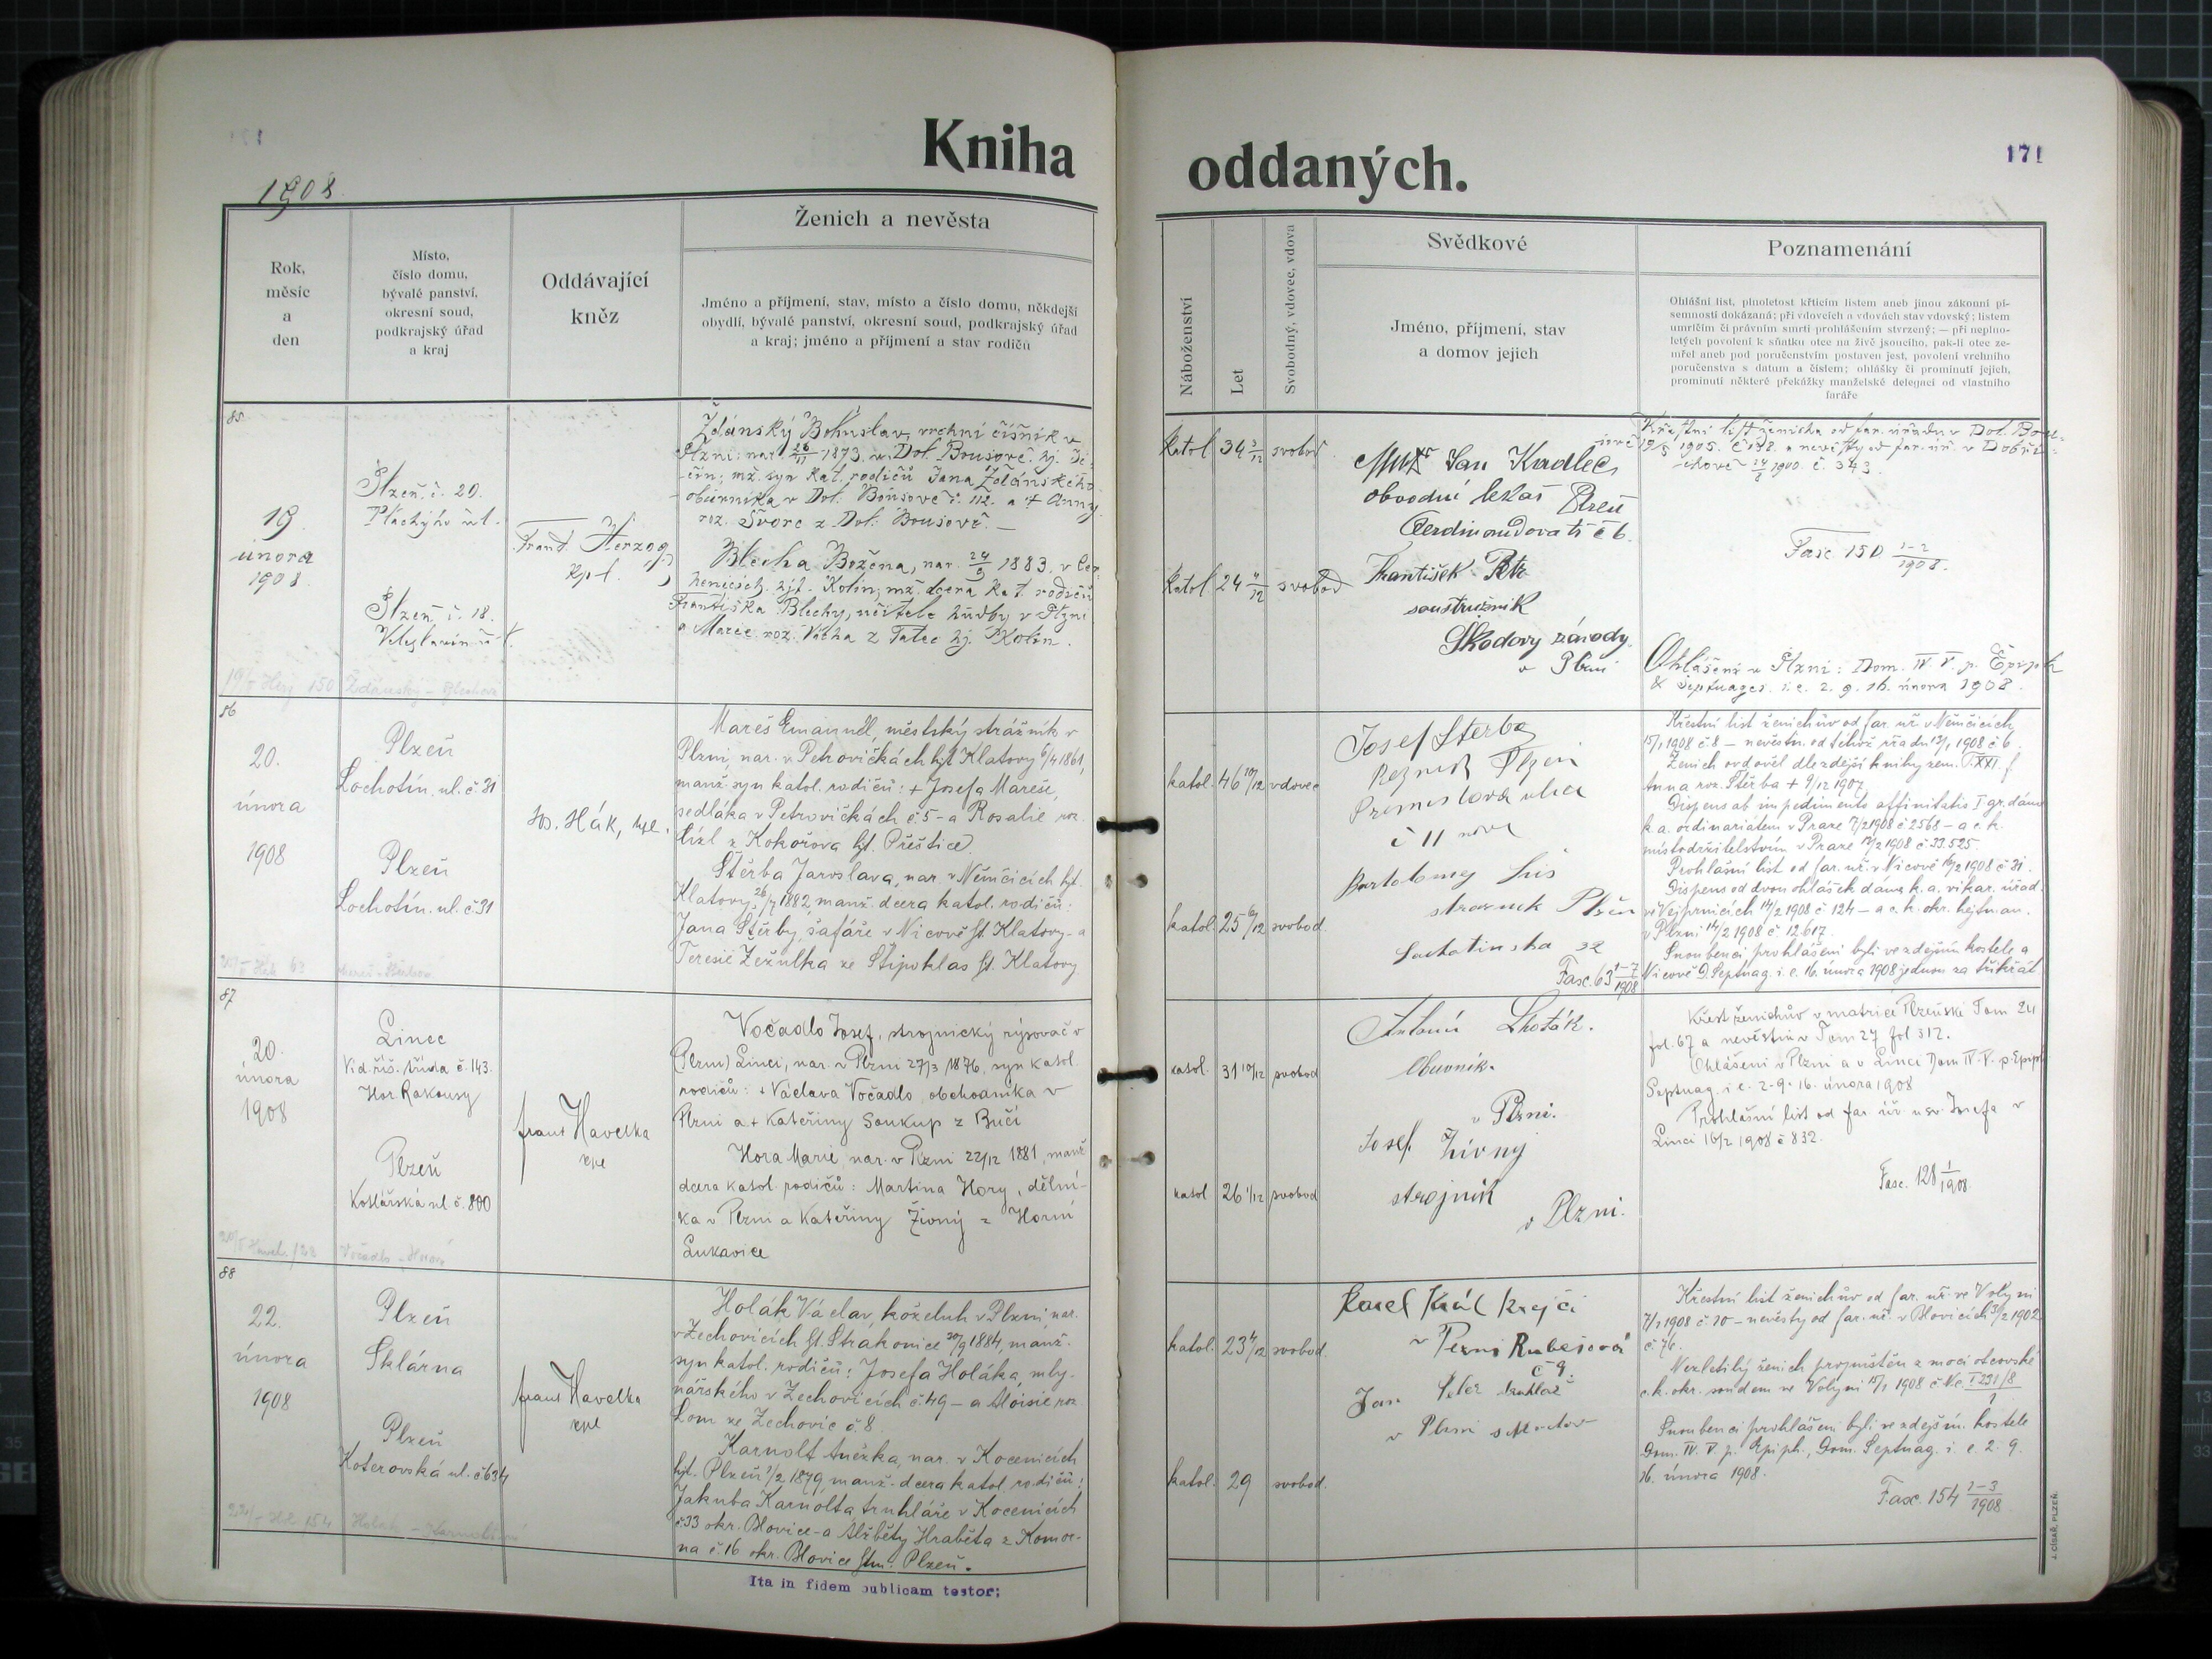 Kniha
oddaných.
171
1908.
Rok,
měsíc
a
den
Místo,
číslo domu,
bývalé panství,
okresní soud,
podkrajský úřad
a kraj
Oddávající
kněz
Ženich a nevěsta
Jméno a příjmení, stav, místo a číslo domu, někdejší
obydlí, bývalé panství, okresní soud, podkrajský úřad
a kraj; jméno a příjmení a stav rodičů
Náboženství
Let
Svobodný, vdovec, vdova
Svědkové
Jméno, příjmení, stav
a domov jejich
Poznamenání
Ohlášní list, plnoletost křticím listem aneb jinou zákonní pí-
semností dokázaná; při vdovcích a vdovách stav vdovský; listem
umrlčím či právním smrti prohlášením stvrzený; — při neplno-
letých povolení k sňatku otce na živě jsoucího, pak-li otec ze-
mřel aneb pod poručenstvím postaven jest, povolení vrchního
poručenstva s datum a číslem; ohlášky či prominutí jejich,
prominutí některé překážky manželské delegací od vlastního
faráře
85
19.
února
1908.
Plzeň, č. 20.
Plachého ul.
Plzeň, č. 18.
Veleslavín. ul.
Frant. Herzog,
kpl.
Ždánský Bohuslav, vrchní číšník v
Plzni; nar. 26/11 1873. v Dol. Bousově. hj. Ji-
čín; mž. syn kat. rodičů Jana Ždánského
obuvníka v Dol. Bousově č. 112. a + Anny
roz. Švorc z Dol. Bousově. —
Blecha Božena, nar. 24/9 1883. v Cer-
henicích. hjt. Kolín; mž. dcera kat. rodičů
Františka Blechy, učitele hudby v Plzni
a Marie roz. Vácha z Tatec hj. Kolín.
katol. 34 3/12 svobod.
katol. 24 4/12 svobod
MUDr Jan Kadlec,
obvodní lékař Plzeň
Ferdinandova tř č 6.
František Petr
soustružník
Škodovy závody
v Plzni
Křestní list ženicha od far. úřadu v Dol. Bou-
1905. č. 132. a nevěsty od far. úř. v Dobři-
chově 1900. č. 343.
Fasc. 150 1-2/1908.
Ohlášeni v Plzni: Dom. IV. V. p. Epiph
& Septuages. i. e. 2. 9. 16. února 1908.
86
20.
února
1908
Plzeň
Lochotín. ul. č 31
Plzeň
Lochotín. ul. č 31
Jos. Hák, kpl.
Mareš Emanuel, městský strážník v
Plzni, nar. v Petrovičkách hjt Klatovy 6/4 1861,
manž. syn katol. rodičů: + Josefa Mareše,
sedláka v Petrovičkách č 5 – a Rosalie roz.
z Kokořova hjt. Přeštice.
Štěrba Jaroslava, nar. v Němčicích hjt.
Klatovy 26/7 1882, manž. dcera katol. rodičů:
Jana Štěrby, šafáře v Nicově hjt. Klatovy – a
Teresie Žežulka ze Štipoklas hjt. Klatovy
katol. 46 10/12 vdovec
katol. 25 6/12 svobod.
Josef Štěrba
Řezník Plzeň
Přemislova ulice
č 11 nové
Bartoloměj Lis
strážník Plzeň
Lochotínská 32
Fasc. 63 1-7/1908
Křestní list ženichův od far. úř. v Němčicích
15/1 1908 č 8 – nevěstin. od téhož úřadu 13/1 1908 č 6.
Ženich ovdověl dle zdejší knihy zem. T. XXI. f
Anna roz. Štěrba + 9/12 1907
Dispens ab impedimento affinitatis I gr. dána
k. a. ordinariátem v Praze 7/2 1908 č 2568 – a c. k.
místodržitelstvím v Praze 12/2 1908 č 33.525.
Prohlášní list od far. úř. v Nicově 16/2 1908 č 31.
Dispens od dvou ohlášek dána k. a. vikar. úřad.
ve Vejprnicích 14/2 1908 č 124 – a c. k. okr. hejtman.
v Plzni 14/2 1908 č 12617.
Snoubenci prohlášeni byli ve zdejším kostele a
Nicově D. Septuag. i. e. 16. února 1908 jednou za třikrát
87
20.
února
1908
Linec
Víd. říš. třída č. 143.
Hor. Rakousy
Plzeň
Kotlářská ul. č. 800
Frant Havelka
kpl
Vočadlo Josef, strojnický rýsovač v
(Plzni) Linci, nar. v Plzni 27/3 1876, syn katol.
rodičů: + Václava Vočadlo, obchodníka v
Plzni a + Kateřiny Soukup z Bučí
Hora Marie, nar. v Plzni 22/12 1881, manž
dcera katol. rodičů: Martina Hory, dělní-
ka v Plzni a Kateřiny Živný z Horní
Lukavice
katol. 31 10/12 svobod
katol 26 1/12 svobod
Antonín Lhoták.
Obuvník.
v Plzni.
Josef Živný
strojník
v Plzni.
Křest ženichův v matrice Plzeňské Tom 24
fol. 67 a nevěstin v Tom 27 fol 312.
Ohlášeni v Plzni a v Linci Dom IV. V. p. Epiph
Septuag. i. e. 2. 9. 16. února 1908
Prohlášní list od far. úř. u sv. Josefa v
Linci 16/2 1908 č 832.
Fasc. 128 1/1908.
88
22.
února
1908
Plzeň
Sklárna
Plzeň
Koterovská ul. č 634
Frant Havelka
kpl
Holák Václav, koželuh v Plzni, nar.
v Zechovicích hjt. Strakonice 20/9 1884, manž.
syn katol. rodičů: Josefa Holáka, mly-
nářského v Zechovicích č. 49 – a Aloisie roz.
Lom ze Zechovic č. 8.
Karnolt Anežka, nar. v Kocenicích
hjt. Plzeň 7/2 1879 manž. dcera katol. rodičů:
Jakuba Karnolta, truhláře v Kocenicích
č. 33 okr. Blovice – a Alžběty Hraběta z Komor-
na č. 16 okr. Blovice hjtm. Plzeň.
katol. 23 4/12 svobod.
katol. 29 svobod.
Karel Král krejčí
v Plzni Rubešová
č 9.
Jan
v Plzni
Křestní list ženichův od far. úř. ve Volyni
7/1 1908 č 10 – nevěsty od far. úř. v Blovicích 3/2 1902
č. 76.
Nezletilý ženich propuštěn z moci otcovské
c. k. okr. soudem ve Volyni 15/1 1908 č Nc. I 231/8
Snoubenci prohlášeni byli ve zdejším. kostele
Dom. IV. V. p. Epiph., Dom. Septuag. i. e. 2. 9.
16. února 1908.
Fasc. 154 1-3/1908
Ita in fidem publicam testor:
J. CÍSAŘ, PLZEŇ.